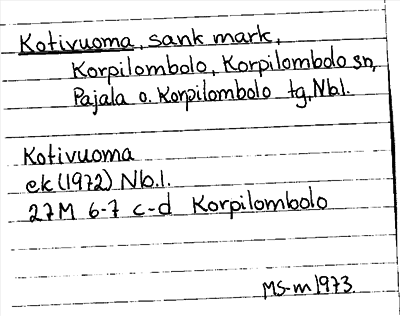 Kotivuoma, sank mark,
Korpilombolo, Korpilombolo sn,
Pajala o. Korpilombolo tg, Nbl.
Kotivuoma
ek (1972) Nb.l.
27M 6-7 c-d Korpilombolo
MS-m 1973